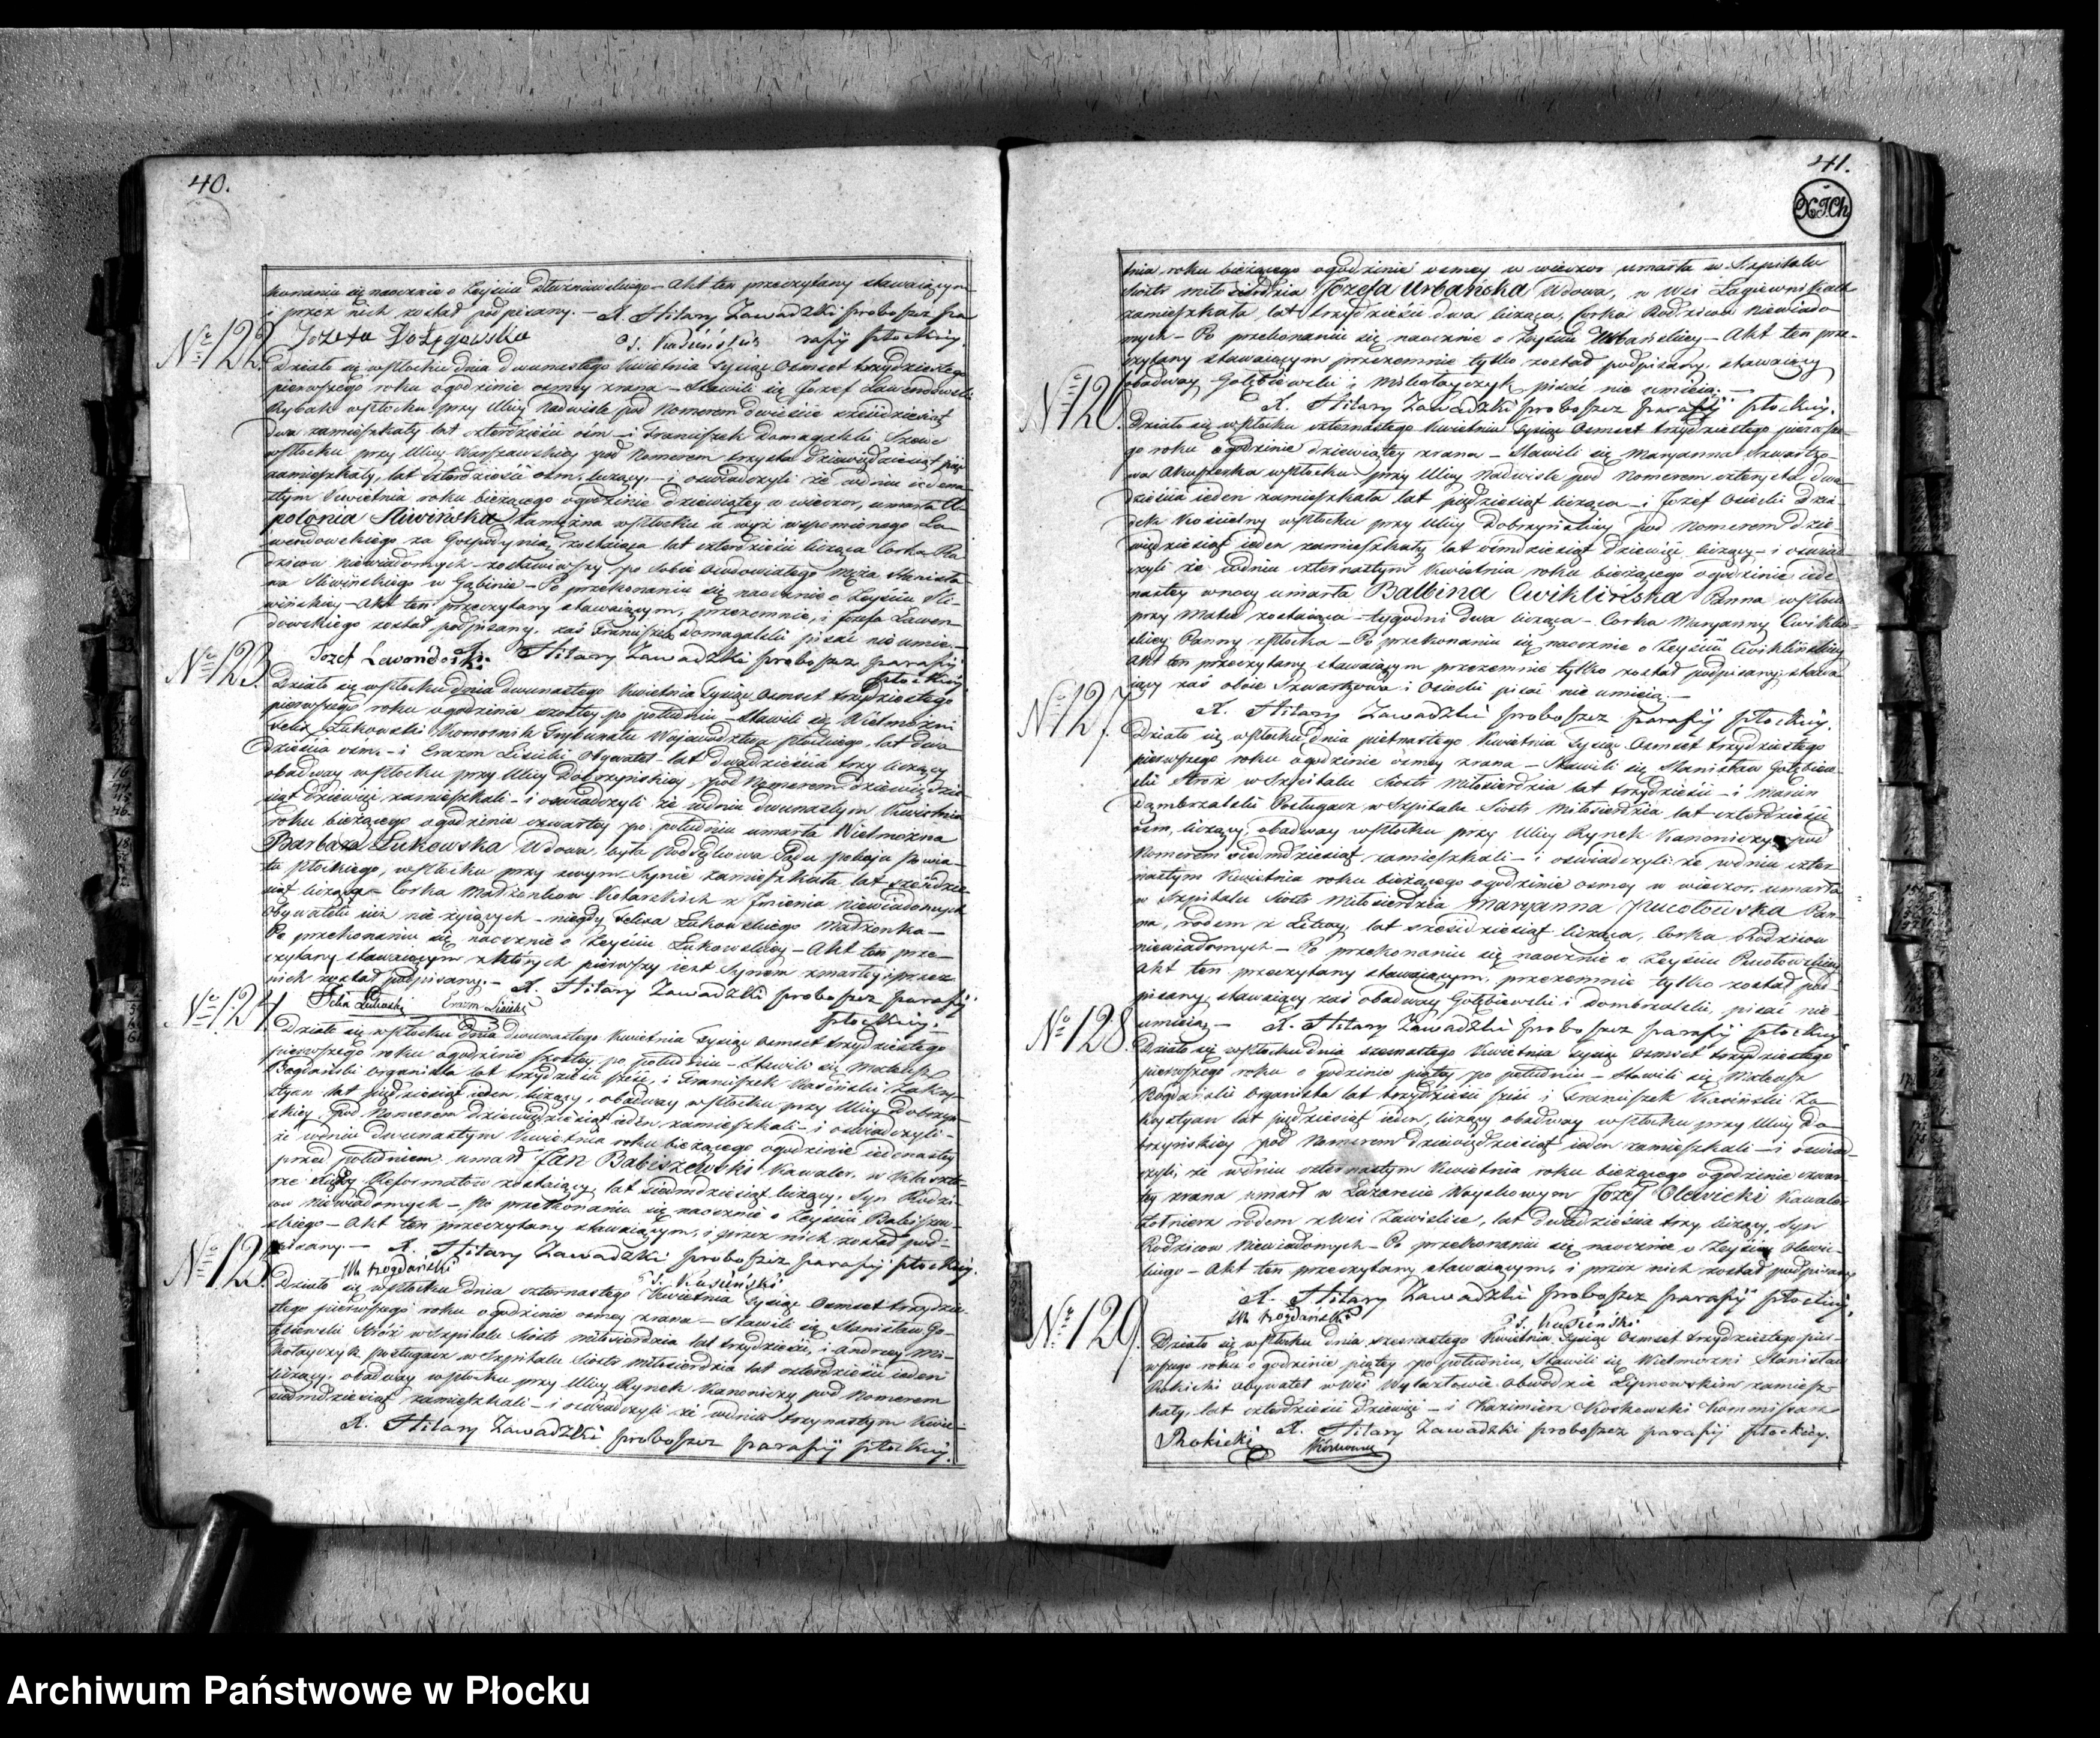 40.
konaniu się naocznie o Zeyściu - Akt ten przeczytany stawaiącym
i przez nich został podpisany. - X. Hilary Zawadzki proboszcz pa
rafij płockiey.
No 122.
Działo się w Płocku dnia dwunastego Kwietnia Tysiąc Osmset trzydziestego
pierwszego roku o godzinie osmey zrana - Stawili się Jozef Lawendowski
Rybak w Płocku przy Ulicy Nadwisle pod Nomerem dwieście sześćdziesiąt
dwa zamieszkały lat czterdzieści ośm - i Franciszek Domagalski Szewc
w Płocku przy Ulicy Warszawskiey pod Nomerem trzysta dziewięćdziesiąt pięć
zamieszkały, lat czterdzieści osm, liczący - i oswiadczyli że w dniu iedena
stym Kwietnia roku bieżącego o godzinie dziewiątey w wieczor, umarła A
polonia Sliwińska zamężna w Płocku u wyż wspomnionego La
wendowskiego za Gospodynią zostaiąca lat czterdzieści licząca Corka Ro
dziców Niewiadomych - zostawiwszy po sobie owdowiałego Męża Stanisła
wa Sliwińskiego w Gąbinie - Po przekonaniu się naocznie o Zeyściu Sli
wińskiey - Akt ten przeczytany stawaiącym, przezemnie, i Jozefa Lawen
dowskiego został podpisany, zaś Franciszek Domagalski pisać nie umie. -
Jozef Lewondoski Hilary Zawadzki proboszcz parafij
płockiey
No 123.
Działo się w Płocku dnia dwunastego Kwietnia Tysiąc Osmset trzydziestego
pierwszego roku o godzinie szostey po południu - stawili się Wielmożni
Felix Łukowski Komornik Trybunału Wojewodztwa płockiego, lat dwa
dzieścia osm - i Erazm Lisicki Obywatel - lat dwadzieścia trzy liczący
obadway w Płocku przy Ulicy Dobrzyńskiey pod Nomerem dziewięćdzie
siąt dziewięć zamieszkali - i oswiadczyli że w dniu dwunastym Kwietnia
roku bieżącego o godzinie czwartey po południu umarła Wielmożna
Barbara Łukowska Wdowa, była Podsędkowa Sądu pokoju Powia
tu płockiego, w Płocku przy swym Synie zamieszkała lat sześćdzie
siąt licząca - Corka Małżonkow z Imienia Niewiadomych
Obywateli iuż nie żyiących - niegdy Felixa Łukowskiego Małżonka -
Po przekonaniu się naocznie o Zeyściu Łukowskiey - Akt ten prze
czytany stawaiącym z których pierwszy iest Synem zmarłey i przez
nich został podpisany. - X. Hilary Zawadzki proboszcz parafij
Felix Łukowski Erazm Lisicki płockiey. -
No 124
Działo się w Płocku dnia Dwunastego Kwietnia Tysiąc Osmset trzydziestego
pierwszego roku o godzinie szostey po południu - Stawili się Mateusz
Bogdański Organista lat trzydzieści sześć, i Franciszek Kasiński Zakry
styan lat pięćdziesiąt ieden, liczący, obadway w Płocku przy Ulicy Dobrzyń
skiey, pod Nomerem dziewięćdziesiąt ieden zamieszkali - i oswiadczyli -
że w dniu dwunastym Kwietnia roku bieżącego o godzinie iedenastey
przed południem umarł Jan Babiszewski Kawaler, w Klaszto
rze Reformatow zostaiący, lat siedmdziesiąt liczący, Syn Rodzi
cow Niewiadomych - Po przekonaniu się naocznie o Zeyściu Babiszew
skiego - Akt ten przeczytany stawaiącym, i przez nich został pod
pisany. - X. Hilary Zawadzki proboszcz parafij płockiey.
M Bogdański F. Kasiński
No 125.
Działo się w Płocku dnia czternastego Kwietnia Tysiąc Osmset trzydzie
stego pierwszego roku o godzinie osmey zrana - Stawili się Stanisław Go
łębiewski Stróż w Szpitalu Siostr Miłosierdzia lat trzydzieści, i Andrzey Mi
kołayczyk posługacz w Szpitalu Siostr Miłosierdzia lat czterdzieści ieden
liczący, obadway w Płocku przy Ulicy Rynek Kanoniczny pod Nomerem
siedmdziesiąt zamieszkali - i oswiadczyli że w dniu trzynastym Kwie-
X. Hilary Zawadzki proboszcz parafij płockiey.
41.
tnia roku bieżącego o godzinie osmey w wieczor umarła w Szpitalu
Siostr Miłosierdzia Jozefa Urbańska Wdowa, w Wsi Łagiewnikach
zamieszkała, lat trzydzieści dwa licząca, Corka Rodziców Niewiado
mych - Po przekonaniu się naocznie o Zeyściu Urbańskiey - Akt ten prze
czytany stawaiącym przezemnie tylko został podpisany, stawaiący
obadway Gołębiewski i Mikołayczyk pisać nie umieią. -
X. Hilary Zawadzki proboszcz parafij płockiey.
No 126.
Działo się w Płocku czternastego Kwietnia Tysiąc Osmset trzydziestego pierwsze
go roku o godzinie dziewiątey zrana - Stawili się Maryanna Szwartzo
wa Akuszerka w Płocku przy Ulicy Nadwisle pod Nomerem czterysta dwa
dzieścia ieden zamieszkała lat pięćdziesiąt licząca - i Jozef Osiecki Dzia
dek Kościelny w Płocku przy Ulicy Dobrzyńskiey pod Nomerem dzie
więćdziesiąt ieden zamieszkały lat ośmdziesiąt dziewięć liczący - i oswiad
czyli że w dniu czternastym Kwietnia roku bieżącego o godzinie iede
nastey w nocy umarła Balbina Cwiklińska Panna w Płocku
przy Matce zostaiąca - tygodni dwa licząca - Corka Maryanny Cwiklin
skiey Panny z Płocka - Po przekonaniu się naocznie o Zeyściu Cwiklińskiey
Akt ten przeczytany stawaiącym przezemnie tylko został podpisany, stawa
iący zaś oboie Szwartzowa i Osiecki pisać nie umieią. -
X. Hilary Zawadzki proboszcz parafij płockiey.
No 127.
Działo się w Płocku dnia pietnastego Kwietnia Tysiąc Osmset trzydziestego
pierwszego roku o godzinie ósmey zrana - Stawili się Stanisław Gołębiew
ski Stróż w Szpitalu Siostr Miłosierdzia lat trzydzieści - i Marcin
Dąmbrzalski Posługacz w Szpitalu Siostr Miłosierdzia lat czterdzieści
ośm, liczący, obadway w Płocku przy Ulicy Rynek Kanoniczny pod
Nomerem siedmdziesiąt zamieszkali - i oswiadczyli że w dniu czter
nastym Kwietnia roku bieżącego o godzinie osmey w wieczor, umarła
w Szpitalu Siostr Miłosierdzia Maryanna Pucołowska Pan
na, rodem z Litwy, lat sześćdziesiąt licząca, Corka Rodzicow
niewiadomych - Po przekonaniu się naocznie o Zeyściu Pucołowskiey
Akt ten przeczytany stawaiącym, przezemnie tylko został pod
pisany, stawaiący zaś obadway Gołębiewski i Dombrzalski, pisać nie
umieią - X. Hilary Zawadzki proboszcz parafij płockiey
No 128.
Działo się w Płocku dnia szesnastego Kwietnia Tysiąc Osmset trzydziestego
pierwszego roku o godzinie piątey po południu - Stawili się Mateusz
Bogdański Organista lat trzydzieści sześć i Franciszek Kasiński Za
krystyan lat pięćdziesiąt ieden, liczący obadway w Płocku przy Ulicy Do
brzyńskiey pod Nomerem dziewięćdziesiąt ieden zamieszkali - i oswiad
czyli, że w dniu czternastym Kwietnia roku bieżącego o godzinie czwar
tey zrana umarł w Lazarecie Woyskowym Jozef Olewicki Kawaler
Żołnierz rodem z Wsi Zawislice, lat dwadzieścia trzy liczący, Syn
Rodzicow Niewiadomych - Po przekonaniu się naocznie o Zeyściu Olewic
kiego - Akt ten przeczytany stawaiącym, i przez nich został podpisany
X. Hilary Zawadzki proboszcz parafij płockiey.
M Bogdański F. Kasiński
No 129.
Działo się w Płocku dnia szesnastego Kwietnia Tysiąc Osmset trzydziestego pier
wszego roku o godzinie piątey po południu, Stawili się Wielmożni Stanisław
Rokicki obywatel w Wsi Wylazłowie Obwodzie Lipnowskim zamiesz
kały, lat czterdzieści dziewięć - i Kazimierz Kossowski Kommissarz
X. Hilary Zawadzki proboszcz parafij płockiey.
SRokicki
Archiwum Państwowe w Płocku